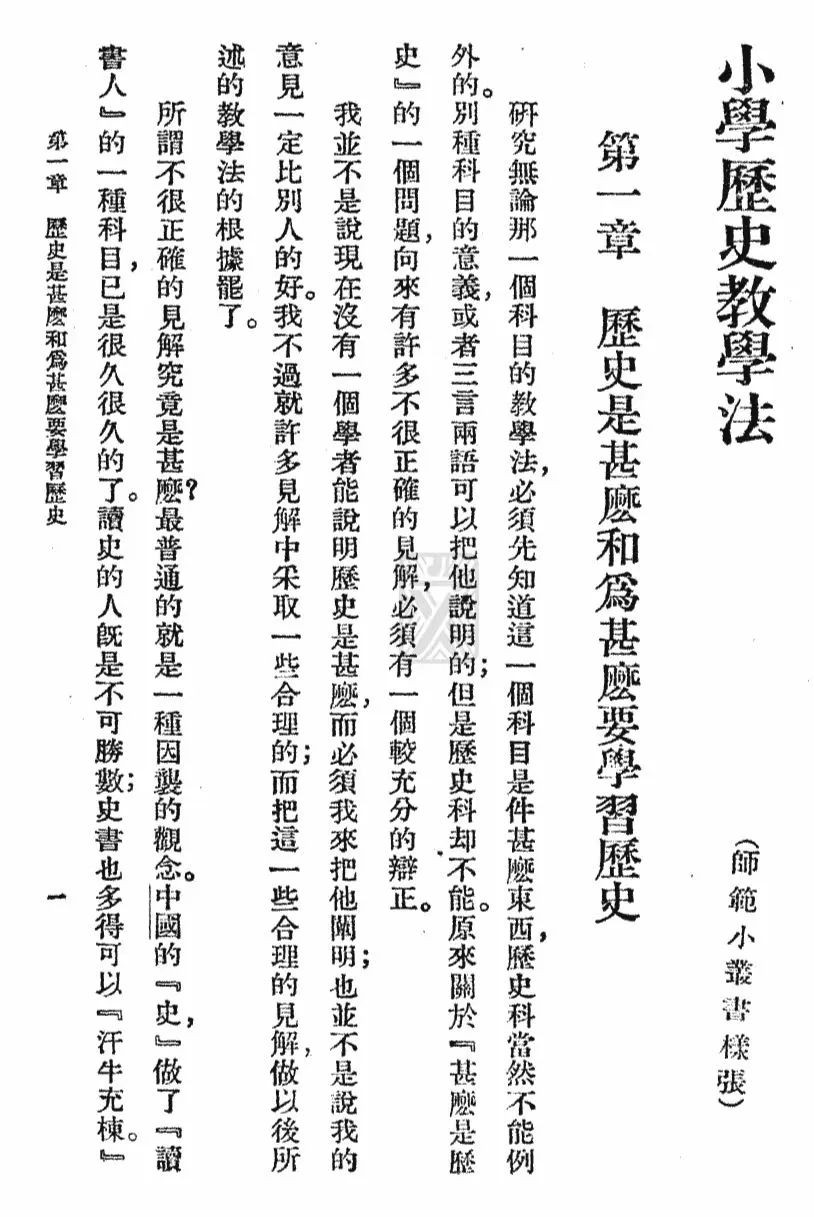 小學歷史教學法
(師範小叢書樣張)
第一章　歷史是甚麼和爲甚麼要學習歷史
研究無論那一個科目的教學法，必須先知道這一個科目是件甚麼東西，歷史科當然不能例
外的。別種科目的意義，或者三言兩語可以把他說明的；但是歷史科却不能。原來關於『甚麼是歷
史』的一個問題，向來有許多不很正確的見解，必須有一個較充分的辯正。
我並不是說現在沒有一個學者能說明歷史是甚麼，而必須我來把他闡明；也並不是說我的
意見一定比別人的好。我不過就許多見解中采取一些合理的；而把這一些合理的見解，做以後所
述的教學法的根據罷了。
所謂不很正確的見解究竟是甚麼？最普通的就是一種因襲的觀念。中國的『史，』做了『讀
書人』的一種科目，已是很久很久的了。讀史的人旣是不可勝數；史書也多得可以『汗牛充棟。』
第一章　歷史是甚麼和爲甚麼要學習歷史
一